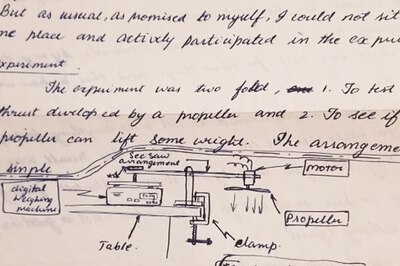 But as usual, as promised to myself, I could not sit
me place and actively participated in the exper
xperiment.
The experiment was two fold, 1. To test
thrust developed by a propeller and 2. To see if
propeller can lift some weight. The arrangeme
simple
see saw
arrangement
motor
digital
weighing
machine
Propeller
Table.
clamp.